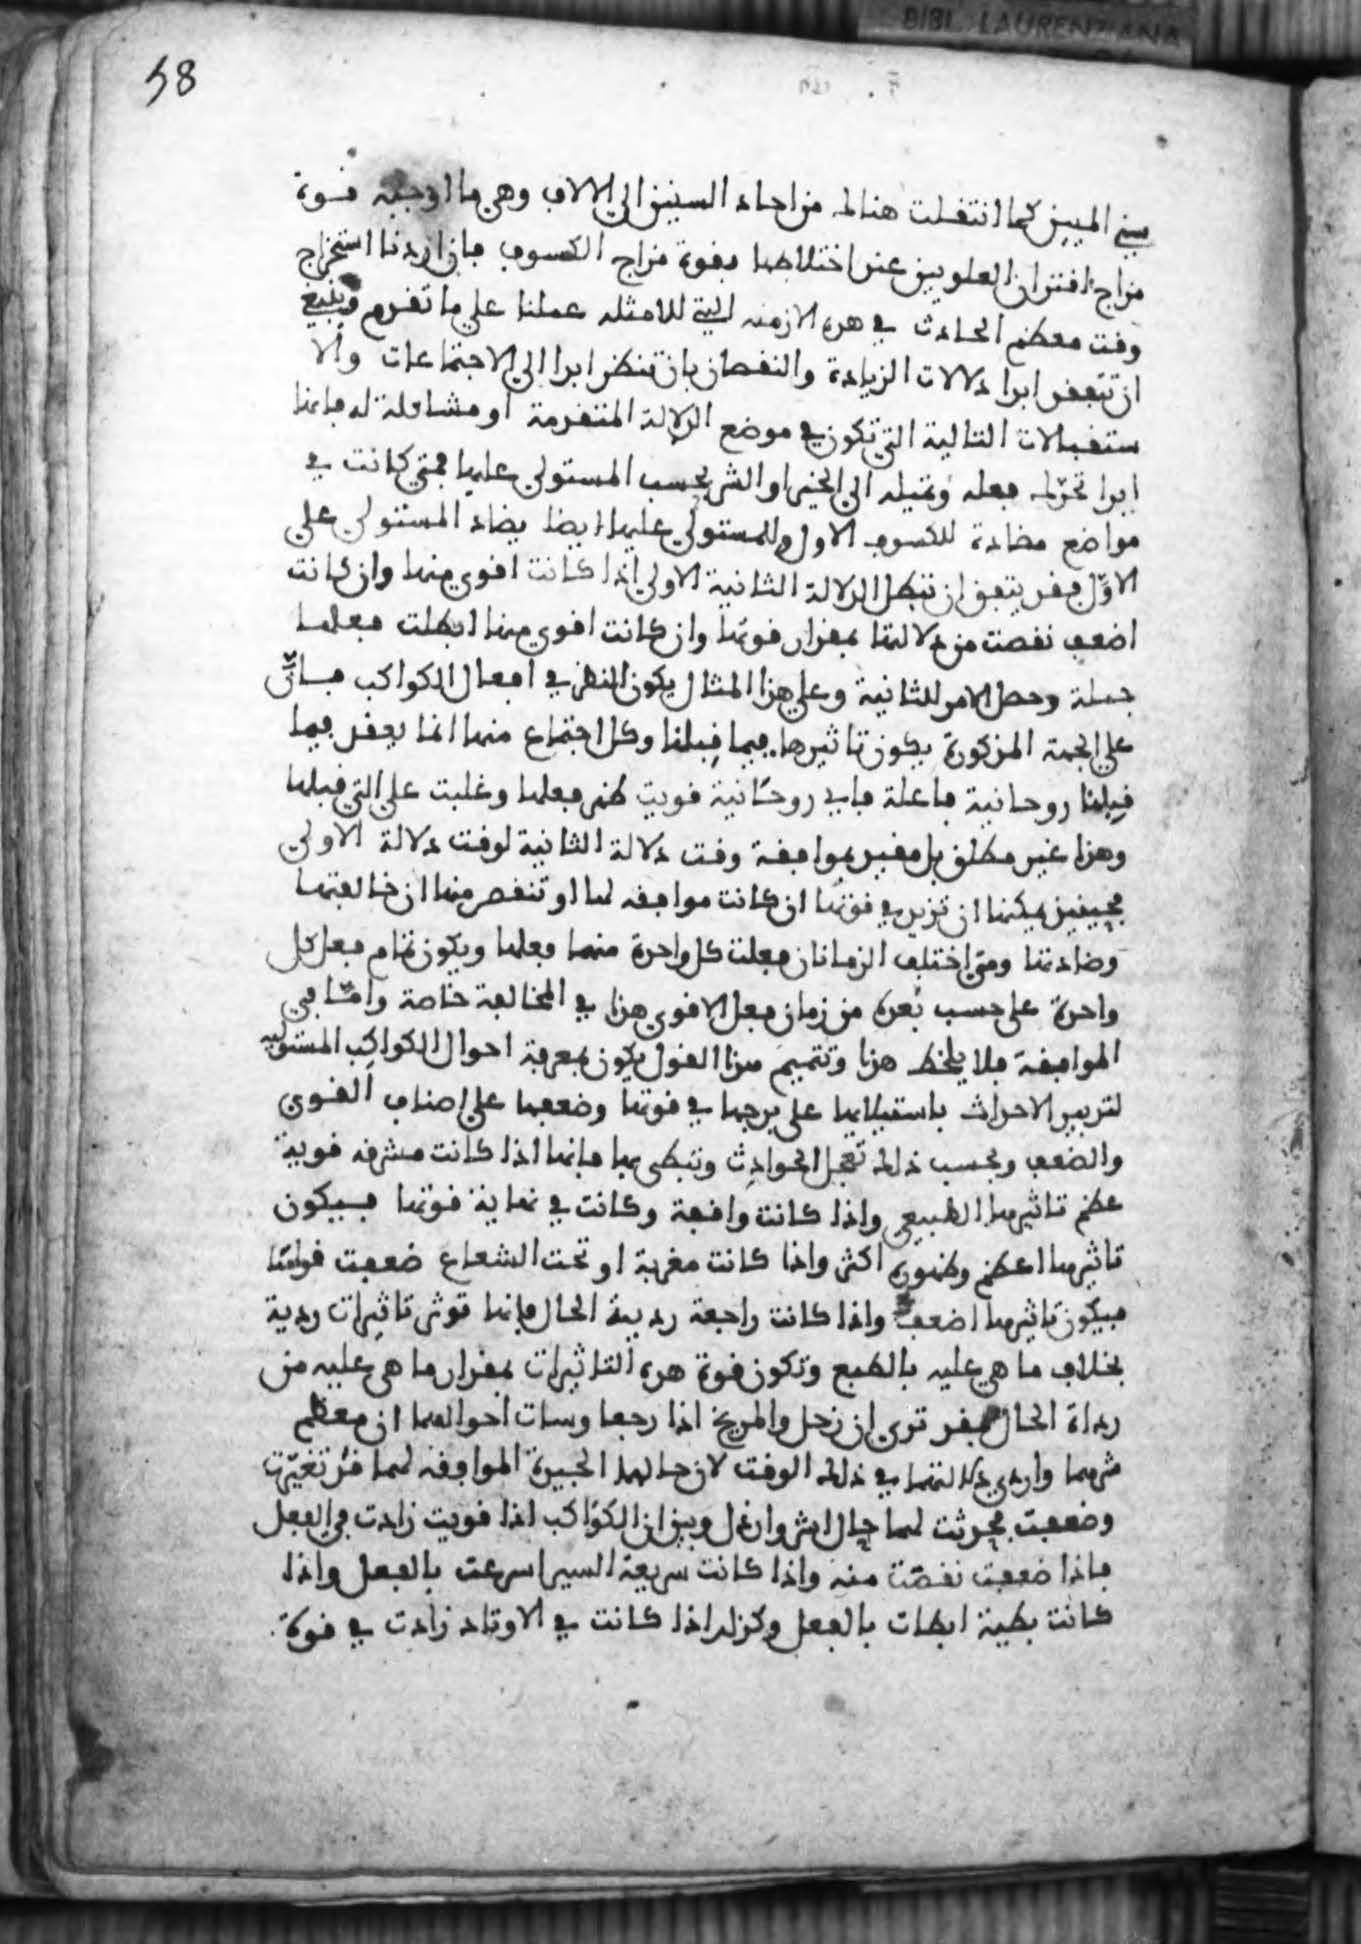 BIBL. LAURENZIANA
58
سني الميين كما انتقلت هنالك من احاد السنين الى الالاف وهي ما اوجبه قوة
مزاج اقتران العلويين عند اختلاطها بقوة مزاج الكسوف فان اردنا استخراج
وقت معظم الحادث في هذه الازمنه التي للامثله عملنا على ما تقدم وينبغي
ان تتفقد ابدا دلالات الزيادة والنقصان بان تنظر ابدا الى الاجتماعات والا
ستقبالات التالية التي تكون في موضع الدلالة المتقدمة او مشاكلة له فانها
ابدا تحرك فعله وتميله الى الخير او الشر بحسب المستولي عليها فمتى كانت في
مواضع مضادة للكسوف الاول وللمستولي عليها ايضا يضاد المستولي على
الاول فقد يتفق ان تبطل الدلالة الثانية الاولى اذا كانت اقوى منها وان كانت
اضعف نقصت من دلالتها بمقدار قوتها وان كانت اقوى منها ابطلت فعلها
جملة وحصل الامر للثانية وعلى هذا المثال يكون النظر في افعال الكواكب فساير
على الجهة المذكورة يكون تاثيرها فيما قبلنا وكل اجتماع منها انما يعقد فيما
قبلنا روحانية فاعلة فاي روحانية قويت ظهر فعلها وغلبت على التي قبلها
وهذا غير مطلق بل مقيد بموافقة وقت دلالة الثانية لوقت دلالة الاولى
فحينيذ يمكنها ان تزيد في قوتها ان كانت موافقه لها او تنقص منها ان خالفتها
وضادتها ومتى اختلف الزمانان فعلت كل واحدة منهما فعلها ويكون تمام فعل كل
واحدة على حسب بعده من زمان فعل الاقوى هذا في المخالفة خاصة واما في
الموافقة فلا يلحظ هذا وتتميم هذا القول يكون بمعرفة احوال الكواكب المستوليه
لتدبير الاحداث باستيلايها على برجها في قوتها وضعفها على اصناف القوى
والضعف وبحسب ذلك تعجل الحوادث وتبطي بها فانها اذا كانت مشرقه قوية
عظم تاثيرها الطبيعي واذا كانت واقفة وكانت في نهاية قوتها فسيكون
تاثيرها اعظم وظهوره اكثر واذا كانت مغربة او تحت الشعاع ضعفت قواها
فيكون تاثيرها اضعف واذا كانت راجعة ردية الحال فانها توثر تاثيرات ردية
بخلاف ما هي عليه بالطبع وتكون قوة هذه التاثيرات بمقدار ما هي عليه من
رداة الحال فقد ترى ان زحل والمريخ اذا رجعا وسات احوالهما ان معظم
شرهما واردى دلالتهما في ذلك الوقت لان حالهما الجيدة الموافقه لهما قد تغيرت
وضعفت فحدثت لهما حال اشر وارذل وبين ان الكواكب اذا قويت زادت في الفعل
فاذا ضعفت نقصت منه واذا كانت سريعة السير اسرعت بالفعل واذا
كانت بطية ابطات بالفعل وكذلك اذا كانت في الاوتاد زادت في قوة